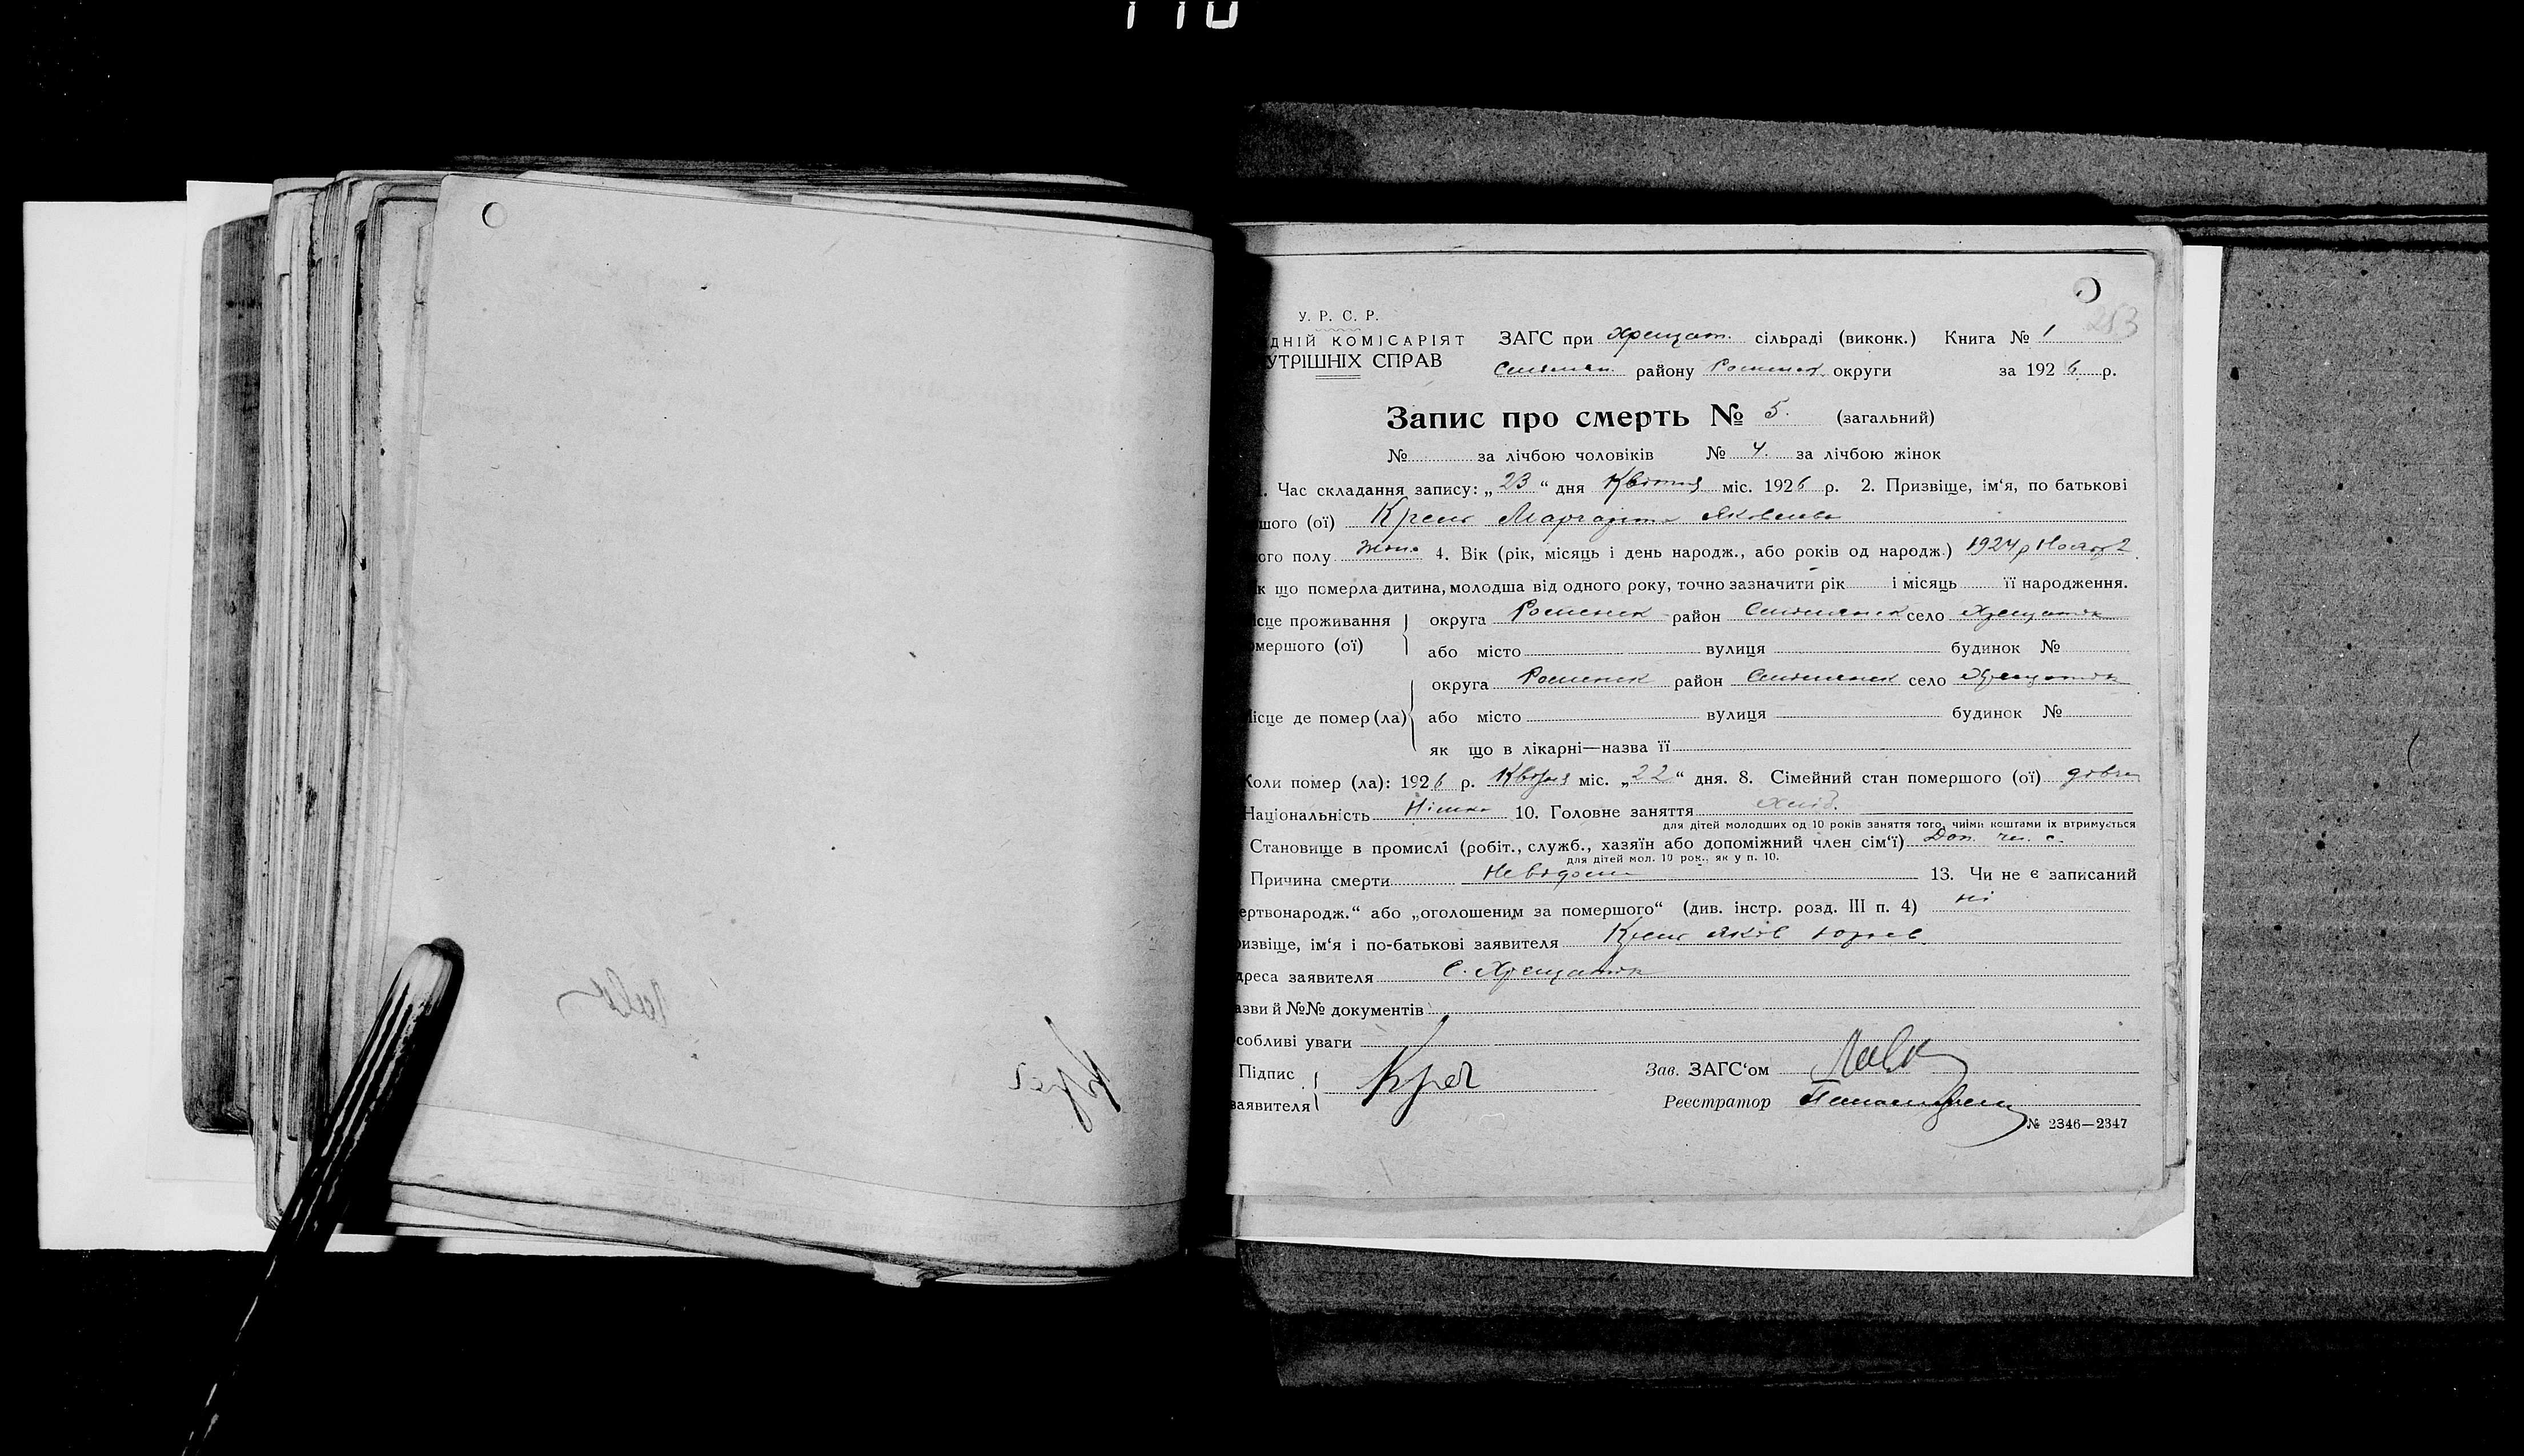 253
У. Р. С. Р.
ДНІЙ КОМІСАРІЯТ ЗАГС при Хрещат. сільраді (виконк.) Книга № 1
УТРІШНІХ СПРАВ району округи за 1926 р.
Запис про смерть № 5. (загальний)
№ за лічбою чоловіків № 4. за лічбою жінок
1. Час складання запису: „23“ дня Квітня міс. 1926 р. 2. Призвіще, ім‘я, по батькові
шого (ої) Маргарита Яковлева
ого полу жін. 4. Вік (рік, місяць і день народж., або років од народж.) 1924 р
к що померла дитина, молодша від одного року, точно зазначити рік і місяць її народження.
ісце проживання округа Роменск район село Хрещатик
омершого (ої) або місто вулиця будинок №
округа Роменск район село Хрещатик
ісце де помер (ла) або місто вулиця будинок №
як що в лікарні—назва її
Коли помер (ла): 1926 р. Квітня міс. „22“ дня. 8. Сімейний стан помершого (ої)
Національність Німка 10. Головне заняття Хліб.
для дітей молодших од 10 років заняття того, чиїми коштами їх втримується
Становище в промислі (робіт., служб., хазяїн або допоміжний член сім‘ї) Доп. чл. с.
для дітей мол. 10 рок., як у п. 10.
Причина смерти Невідома 13. Чи не є записаний
ертвонародж.“ або „оголошеним за помершого“ (див. інстр. розд. III п. 4) ні
ризвіще, ім‘я і по-батькові заявителя Яків
дреса заявителя с. Хрещатик
азви й №№ документів
собливі уваги
Підпис Зав. ЗАГС‘ом
заявителя Реєстратор
№ 2346—2347